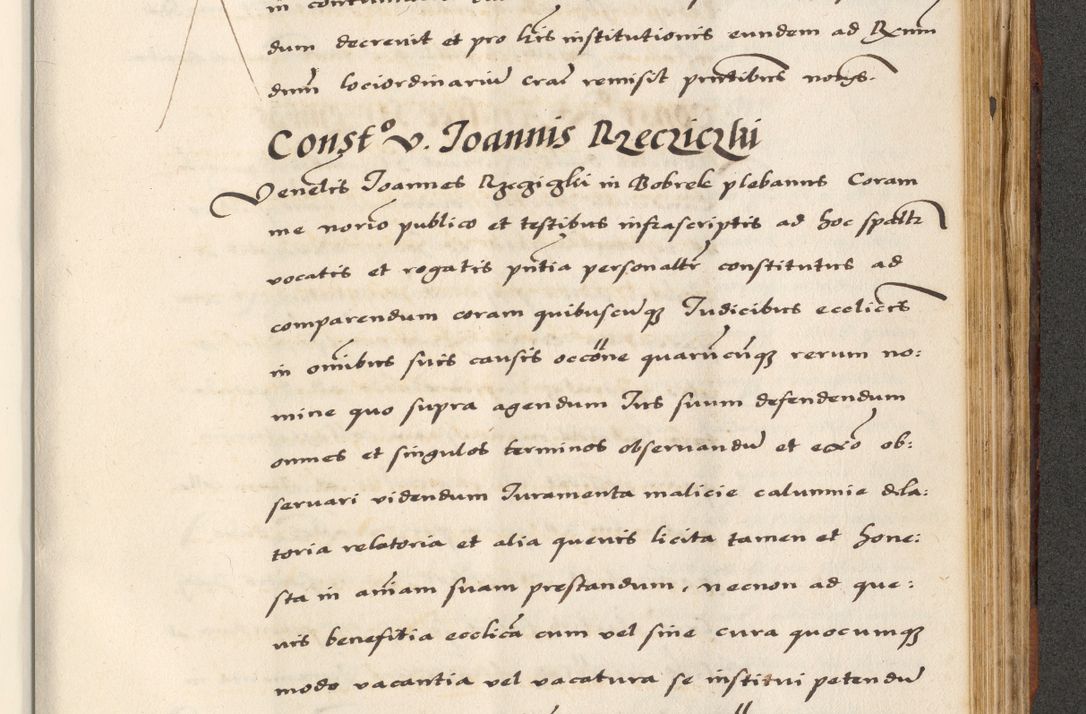 dum decrevit et pro lr̃is institutionis eundem ad R̃xm̃um
dum̃ loci ordinariũ crac̃ remisit pñtibus nobis.
Const.º v. Ioannis Rzecziczki
Venelis Joannes Rzecziczki in Bobrek plebanus Coram
me norio publico et testibus infrascriptis ad hoc spaltr̃
vocatis et rogatis pñtia personaltr̃ constitutus ad
comparendum coram quibuscũqȝ Iudicibus ecclicis
in om̃ibus suis causis occõne quarũcũqȝ rerum no:
mine quo supra agendum Ius suum defendendum
omnes et singulos terminos observandũ et ecxõ ob:
servari videndum Iuramenta malicie calumnie dela:
toria relatoria et alia quevis licita tamen et hone:
sta in añiam suam prestandum, necnon ad que:
vis benefitia ecclica cum vel sine cura quocumqȝ
modo vacantia vel vacatura se institui petendũ